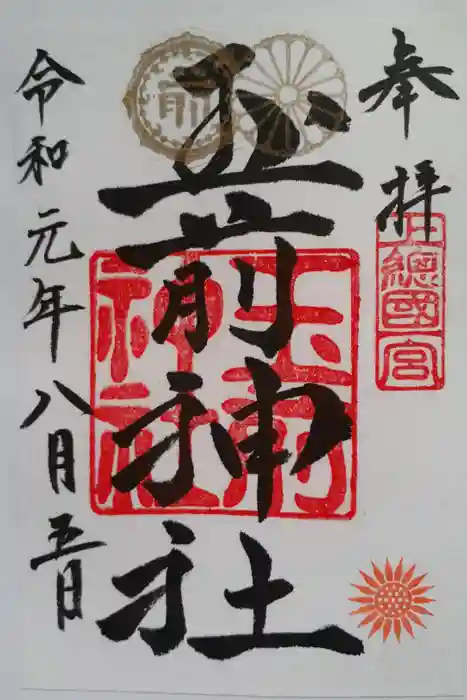 奉拝
上總國一宮
玉前神社
玉前神社
前
令和元年八月五日